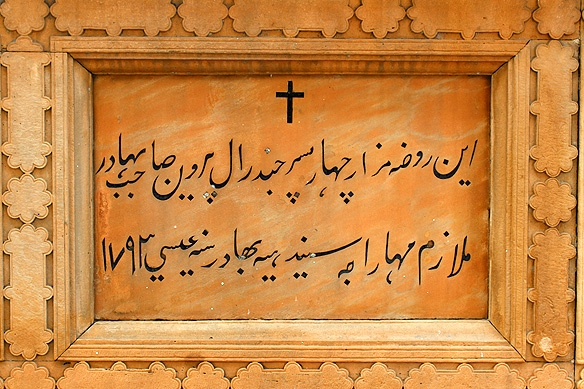 این روضه مزار چهار پسر جنرال پرون صاحب بهادر
ملازم مهاراجه سیندهیه بهادر سنه عیسی ۱۷۹۳